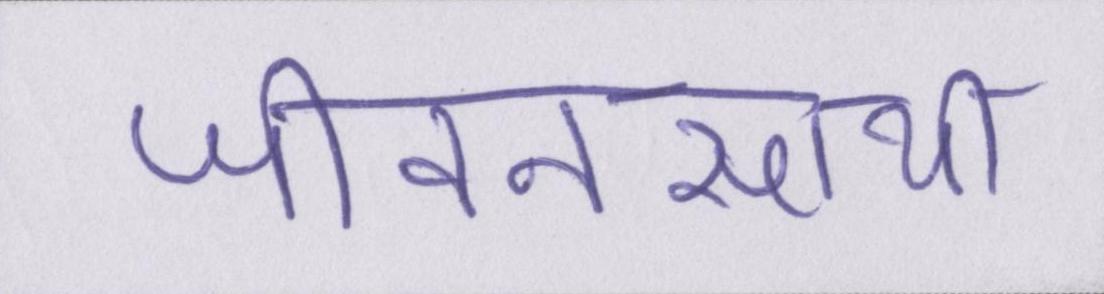 जीवनसाथी